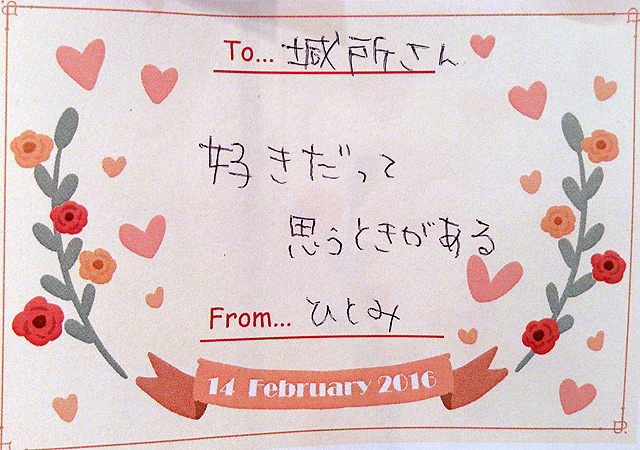 To... 城所さん
好きだって
思うときがある
From... ひとみ
14 February 2016